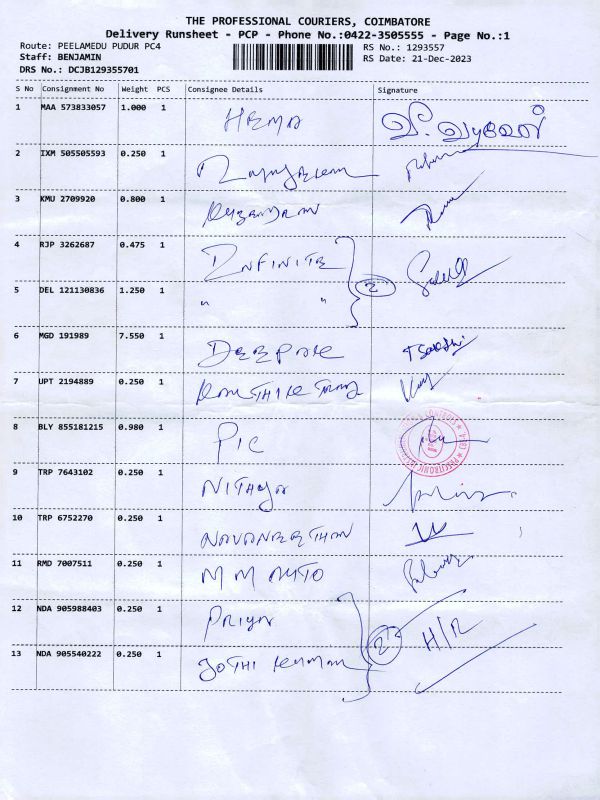 THE PROFESSIONAL COURIERS, COIMBATORE
Delivery Runsheet - PCP - Phone No.:0422-3505555 - Page No.:1
Route: PEELAMEDU PUDUR PC4
RS No.: 1293557
Staff: BENJAMIN
RS Date: 21-Dec-2023
DRS No.: DCJB129355701
S No Consignment No Weight PCS Consignee Details Signature
1 MAA 573833057 1.000 1 HEMA
2 IXM 505505593 0.250 1
3 KMU 2709920 0.800 1
4 RJP 3262687 0.475 1 INFINITE
5 DEL 121130836 1.250 1 " " 2
6 MGD 191989 7.550 1 DEEPAK
7 UPT 2194889 0.250 1
8 BLY 855181215 0.980 1 PIC
9 TRP 7643102 0.250 1 NITHYA
10 TRP 6752270 0.250 1 NAVANEETHAN
11 RMD 7007511 0.250 1 M M AUTO
12 NDA 905988403 0.250 1 PRIYA 2 H/R
13 NDA 905540222 0.250 1 JOTHI KUMAR